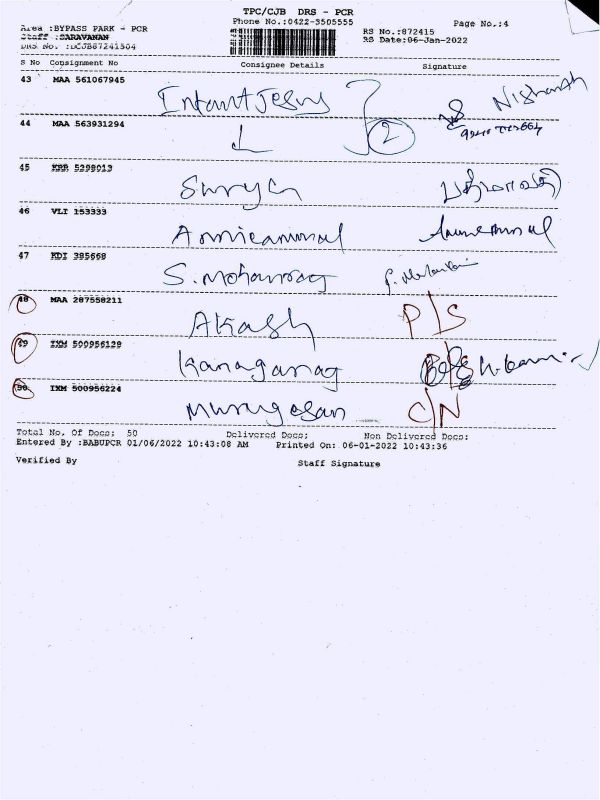 TPC/CJB DRS - PCR
Area :BYPASS PARK - PCR
Phone No.:0422-3505555
Page No.:4
Staff :SARAVANAN
RS No.:872415
DRS No. :DCJB87241504
RS Date:06-Jan-2022
S No Consignment No Consignee Details Signature
43 MAA 561067945
Infant Jesus
Nishanth
44 MAA 563931294
2
45 5299013
Surya
46 VLI 153333
Annieammal
47 KDI 395668
S. Mohanraj
48 MAA 287558211
Akash P/S
49 IXM 500956129
Kanagaraj
50 IXM 500956224
Murugesan C/N
Total No. Of Docs: 50 Delivered Docs: Non Delivered Docs:
Entered By :BABUPCR 01/06/2022 10:43:08 AM Printed On: 06-01-2022 10:43:36
Verified By Staff Signature